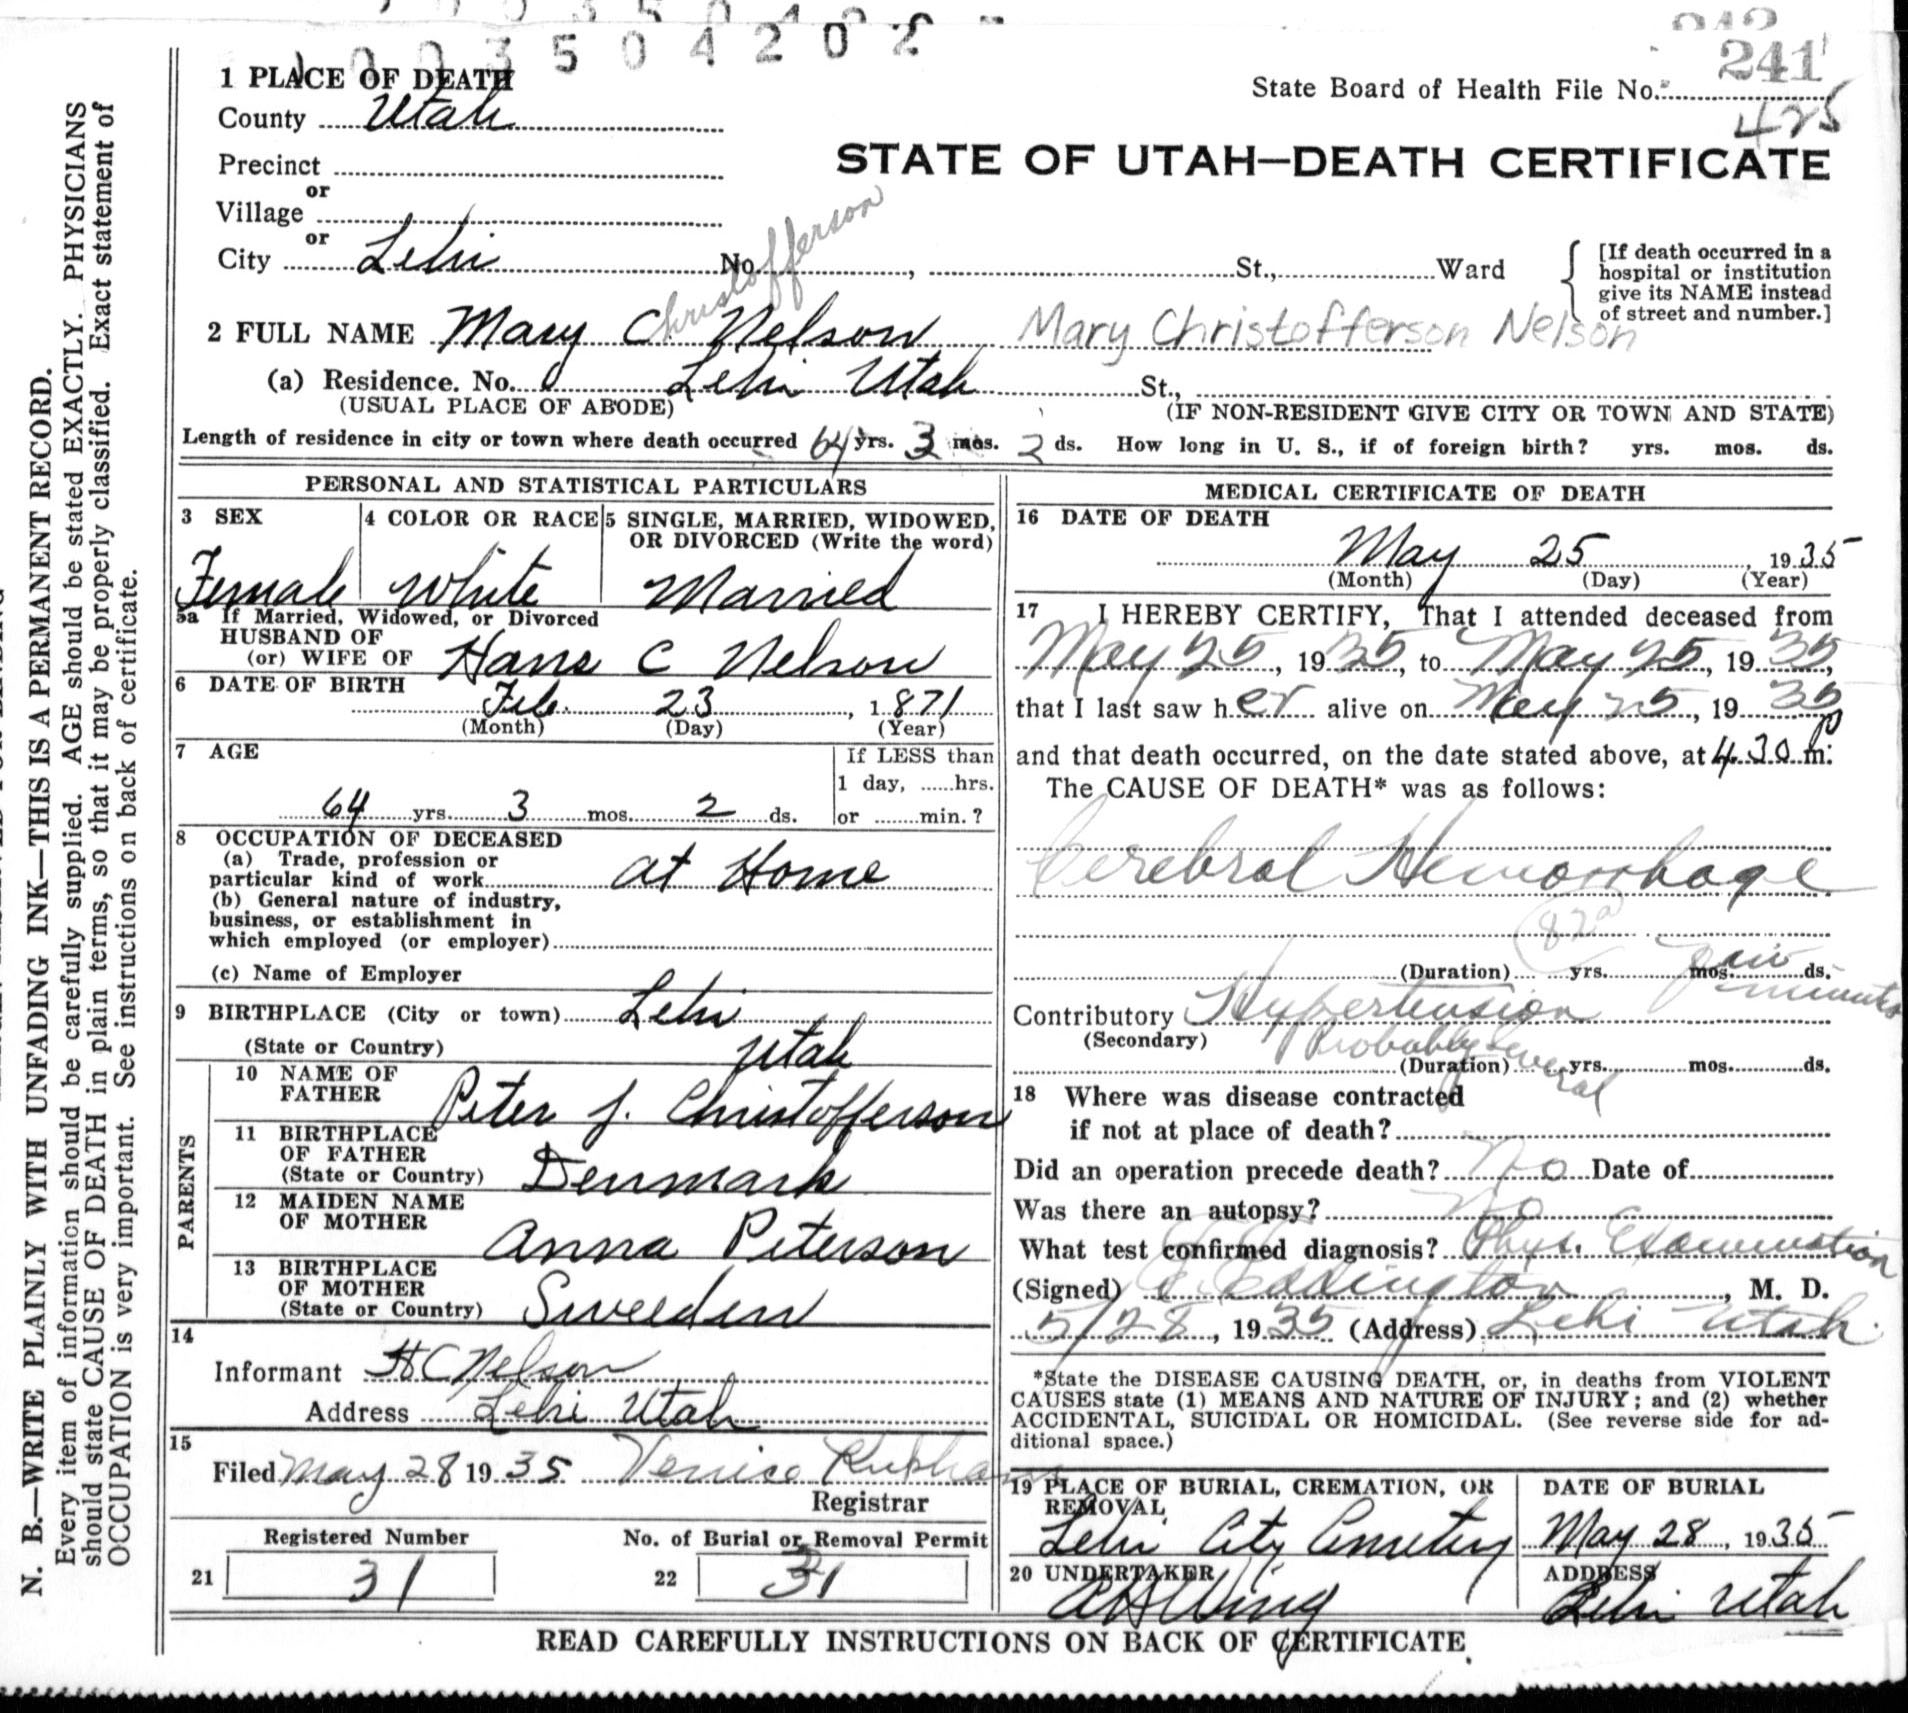 1003504202
242
241
1 PLACE OF DEATH
State Board of Health File No.
425
County Utah
STATE OF UTAH—DEATH CERTIFICATE
Precinct
or
Village
or
City Lehi No. , St., Ward
[If death occurred in a
hospital or institution
give its NAME instead
of street and number.]
Christofferson
2 FULL NAME Mary C Nelson Mary Christofferson Nelson
(a) Residence. No. Lehi Utah St.,
(USUAL PLACE OF ABODE) (IF NON-RESIDENT GIVE CITY OR TOWN AND STATE)
Length of residence in city or town where death occurred 64 yrs. 3 mos. 2 ds. How long in U. S., if of foreign birth? yrs. mos. ds.
PERSONAL AND STATISTICAL PARTICULARS
3 SEX
Female
4 COLOR OR RACE
White
5 SINGLE, MARRIED, WIDOWED,
OR DIVORCED (Write the word)
Married
5a If Married, Widowed, or Divorced
HUSBAND OF
(or) WIFE OF Hans C Nelson
6 DATE OF BIRTH
Feb. 23, 1871
(Month) (Day) (Year)
7 AGE
64 yrs. 3 mos. 2 ds.
If LESS than
1 day, hrs.
or min.?
8 OCCUPATION OF DECEASED
(a) Trade, profession or
particular kind of work at Home
(b) General nature of industry,
business, or establishment in
which employed (or employer)
(c) Name of Employer
9 BIRTHPLACE (City or town) Lehi
(State or Country) Utah
PARENTS
10 NAME OF
FATHER Peter J. Christofferson
11 BIRTHPLACE
OF FATHER
(State or Country) Denmark
12 MAIDEN NAME
OF MOTHER Anna Peterson
13 BIRTHPLACE
OF MOTHER
(State or Country) Sweeden
14
Informant H C Nelson
Address Lehi Utah
15
Filed May 28 1935 Venice
Registrar
Registered Number
21 31
No. of Burial or Removal Permit
22 31
MEDICAL CERTIFICATE OF DEATH
16 DATE OF DEATH
May 25, 1935
(Month) (Day) (Year)
17 I HEREBY CERTIFY, That I attended deceased from
May 25, 1935, to May 25, 1935,
that I last saw her alive on May 25, 1935
and that death occurred, on the date stated above, at 4.30 p m.
The CAUSE OF DEATH* was as follows:
Cerebral Hemorrhage
82a
(Duration) yrs. mos. ds.
few
minutes
Contributory Hypertension
(Secondary) Probably several
(Duration) yrs. mos. ds.
18 Where was disease contracted
if not at place of death?
Did an operation precede death? No Date of
Was there an autopsy? No
What test confirmed diagnosis? Phys. Examination
(Signed) Eddington, M. D.
5/28, 1935 (Address) Lehi Utah.
*State the DISEASE CAUSING DEATH, or, in deaths from VIOLENT
CAUSES state (1) MEANS AND NATURE OF INJURY; and (2) whether
ACCIDENTAL, SUICIDAL OR HOMICIDAL. (See reverse side for ad-
ditional space.)
19 PLACE OF BURIAL, CREMATION, OR
REMOVAL
Lehi City Cemetery
DATE OF BURIAL
May 28, 1935
20 UNDERTAKER
A H Wing
ADDRESS
Lehi Utah
READ CAREFULLY INSTRUCTIONS ON BACK OF CERTIFICATE
N. B.—WRITE PLAINLY WITH UNFADING INK—THIS IS A PERMANENT RECORD.
Every item of information should be carefully supplied. AGE should be stated EXACTLY. PHYSICIANS
should state CAUSE OF DEATH in plain terms, so that it may be properly classified. Exact statement of
OCCUPATION is very important. See instructions on back of certificate.